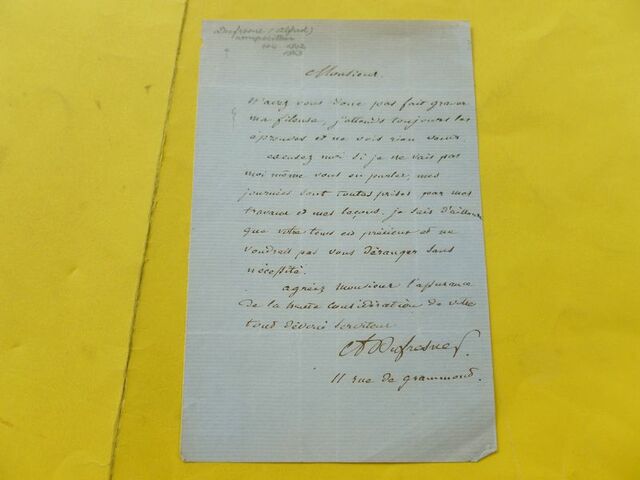 Dufresne (Alfred)
compositeur
Monsieur.
n'avez vous donc pas fait graver
ma fileuse, j'attends toujours les
épreuves et ne vois rien venir.
excusez moi si je ne vais pas
moi même vous en parler, mes
journées sont toutes prises par mes
travaux et mes leçons. je sais d'ailleurs
que votre tems est précieux et ne
voudrais pas vous déranger sans
nécessité.
agréez Monsieur l'assurance
de la haute considération de votre
tout dévoué serviteur
A Dufresne
11 rue de grammont.